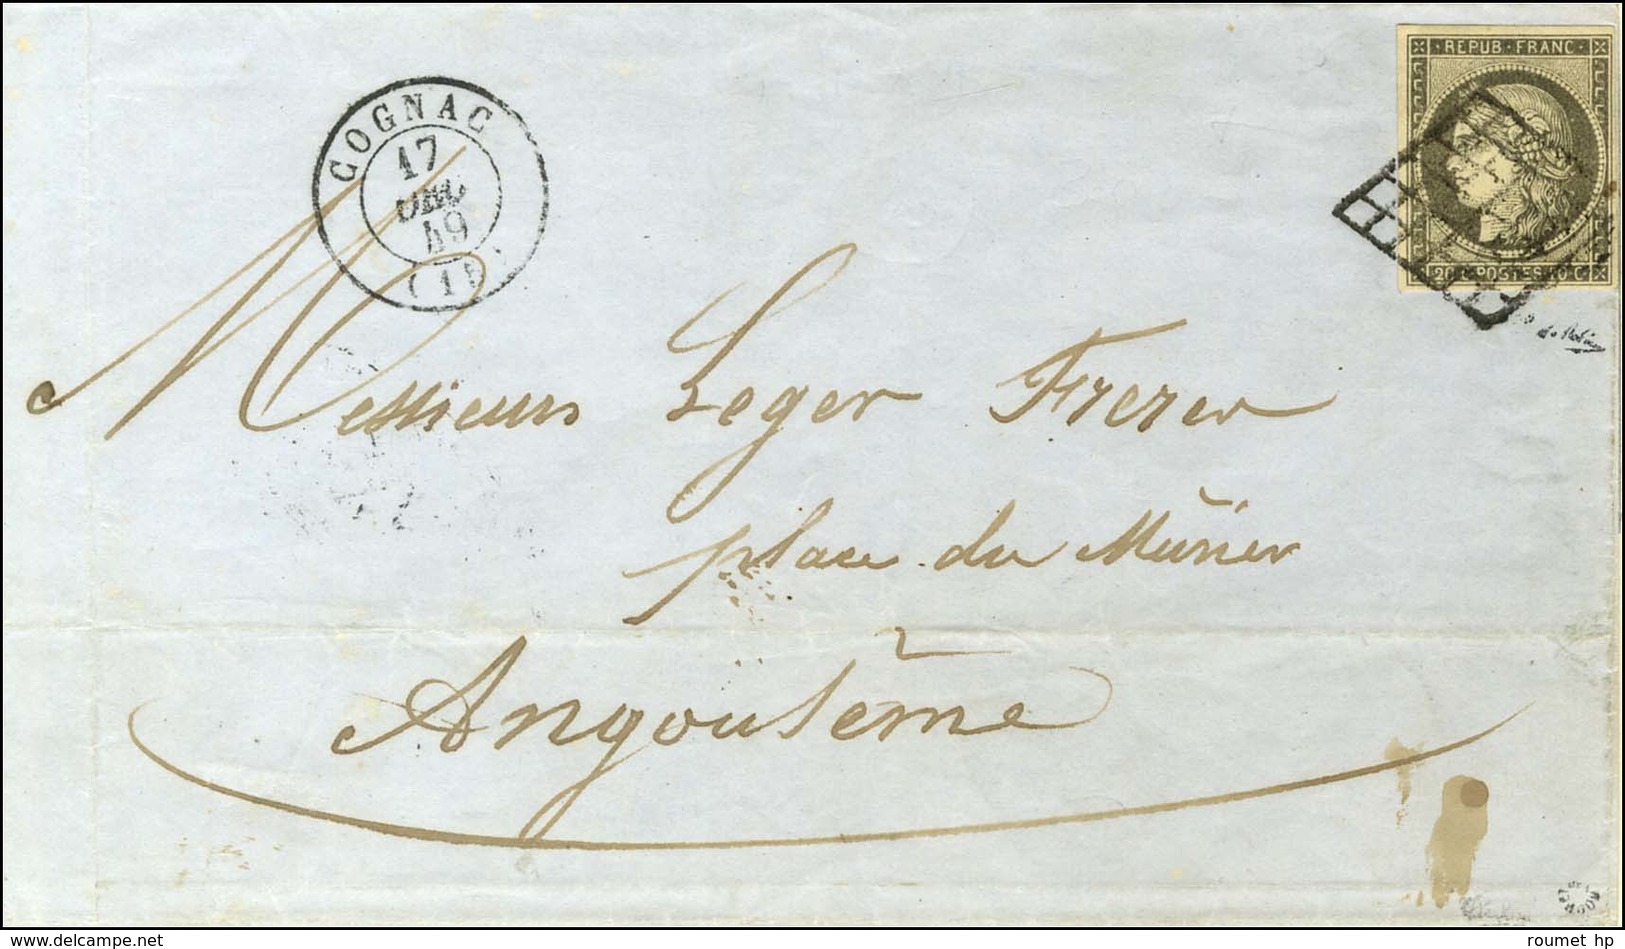 REPUB·FRANC·
20 C POSTES 20 C
COGNAC
17
DEC
49
(15)
Messieurs Leger Freres
place du Mûrier
Angoulême
ROUMET
www.delcampe.net
roumet hp